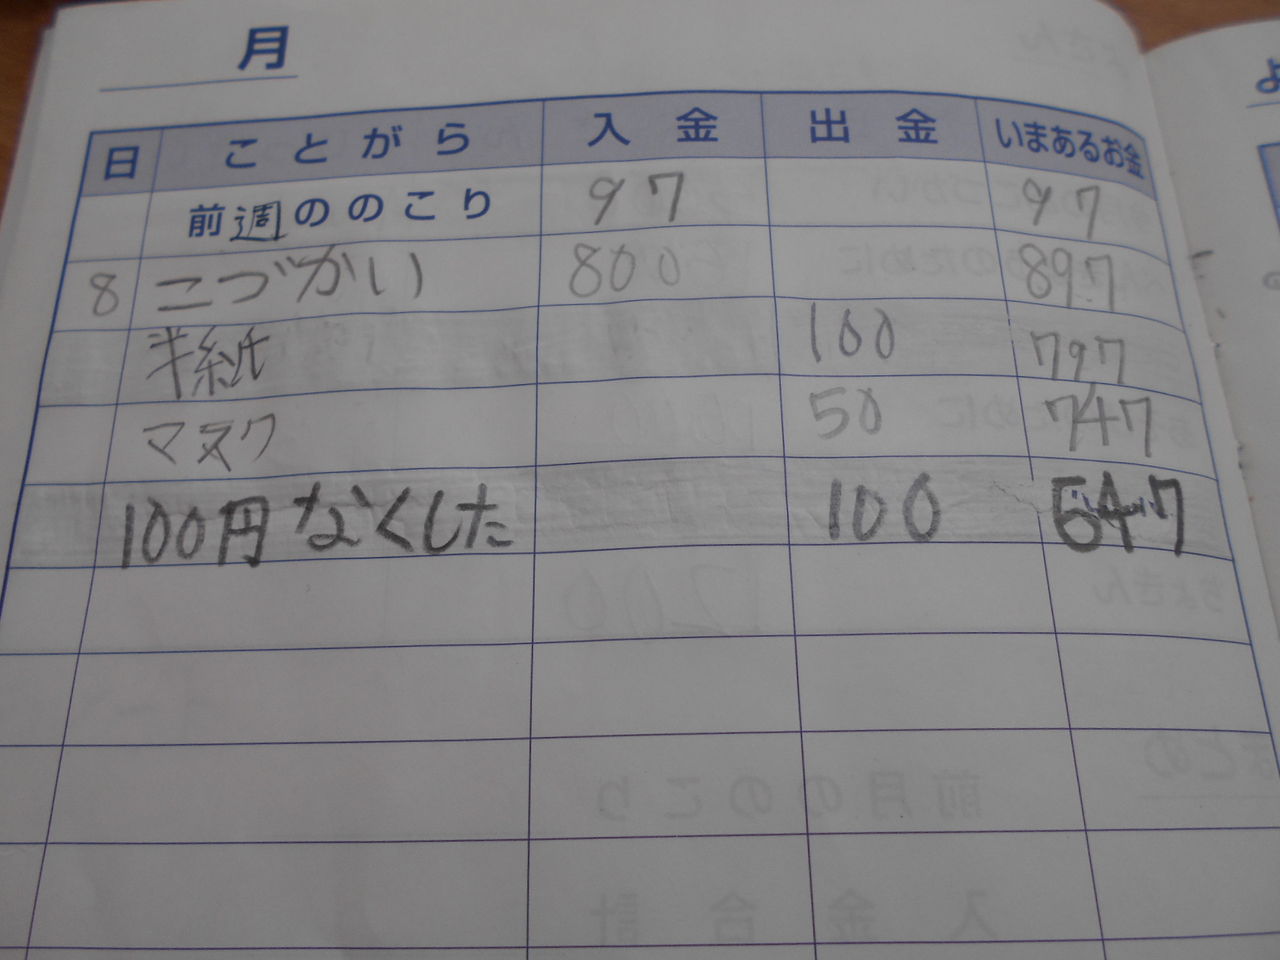 月
日 ことがら 入金 出金 いまあるお金
前週ののこり 97 97
8 こづかい 800 897
半紙 100 797
マスク 50 747
100円なくした 100 547